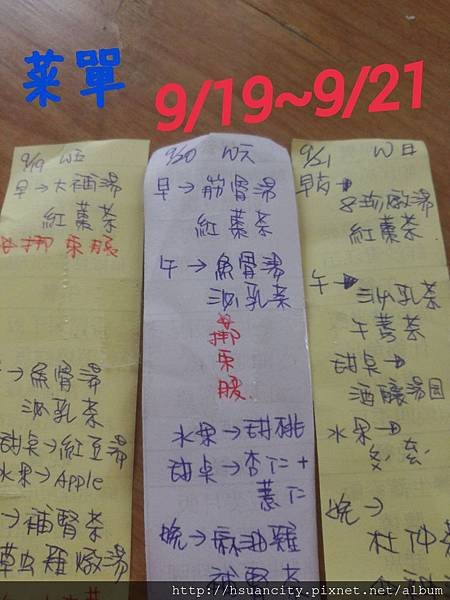 菜單
9/19~9/21
9/19 W五
早→大補湯
紅棗茶
挪東服
→魚骨湯
泌乳茶
甜点→紅豆湯
水果→Apple
→補腎茶
草虫雞燉湯
9/20 W六
早→筋骨湯
紅棗茶
午→魚骨湯
泌乳茶
挪
東
服
水果→甜桃
甜点→杏仁+
薏仁
晚→麻油雞
補腎茶
9/21 W日
早→
燉湯
紅棗茶
午→
泌乳茶
茶
甜点→
酒釀湯圓
水果→
晚→
杜仲茶
http://hsuancity.pixnet.net/album